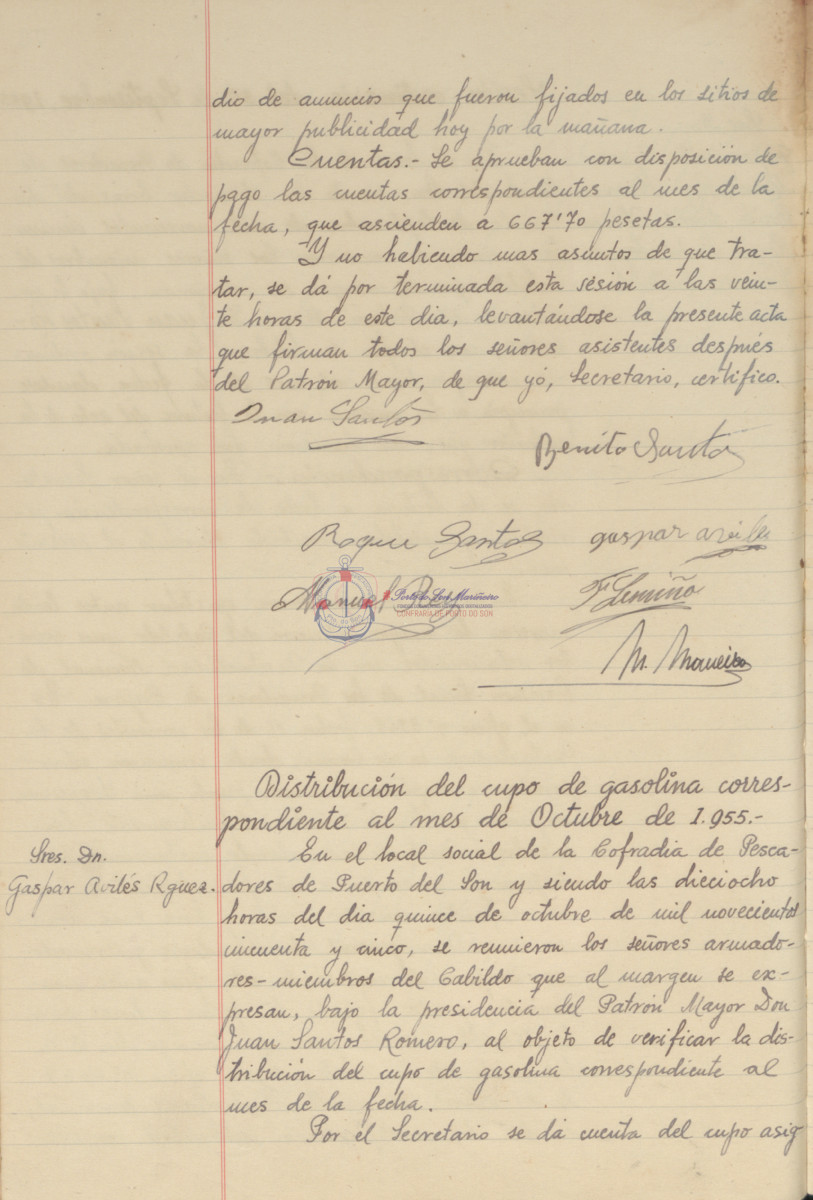 dio de anuncios que fueron fijados en los sitios de
mayor publicidad hoy por la mañana.
Cuentas.- Se aprueban con disposición de
pago las cuentas correspondientes al mes de la
fecha, que ascienden a 667'70 pesetas.
Y no habiendo mas asuntos de que tra-
tar, se dá por terminada esta sésión a las vein-
te horas de este dia, levantándose la presente acta
que firman todos los señores asistentes después
del Patrón Mayor, de que yó, Secretario, certifico.
Juan Santos
Benito Santos
Roque Santos gaspar aviles
Manuel
Porto do Son Mariñeiro
CONFRARÍA DE PORTO DO SON
M. Maneiro
Distribución del cupo de gasolina corres-
pondiente al mes de Octubre de 1.955.-
Sres. Dn.
Gaspar Avilés Rguez.
En el local social de la Cofradia de Pesca-
dores de Puerto del Son y siendo las dieciocho
horas del dia quince de octubre de mil novecientos
cincuenta y cinco, se reunieron los señores armado-
res-miembros del Cabildo que al margen se ex-
presan, bajo la presidencia del Patrón Mayor Don
Juan Santos Romero, al objeto de verificar la dis-
tribución del cupo de gasolina correspondiente al
mes de la fecha.
Por el Secretario se dá cuenta del cupo asig